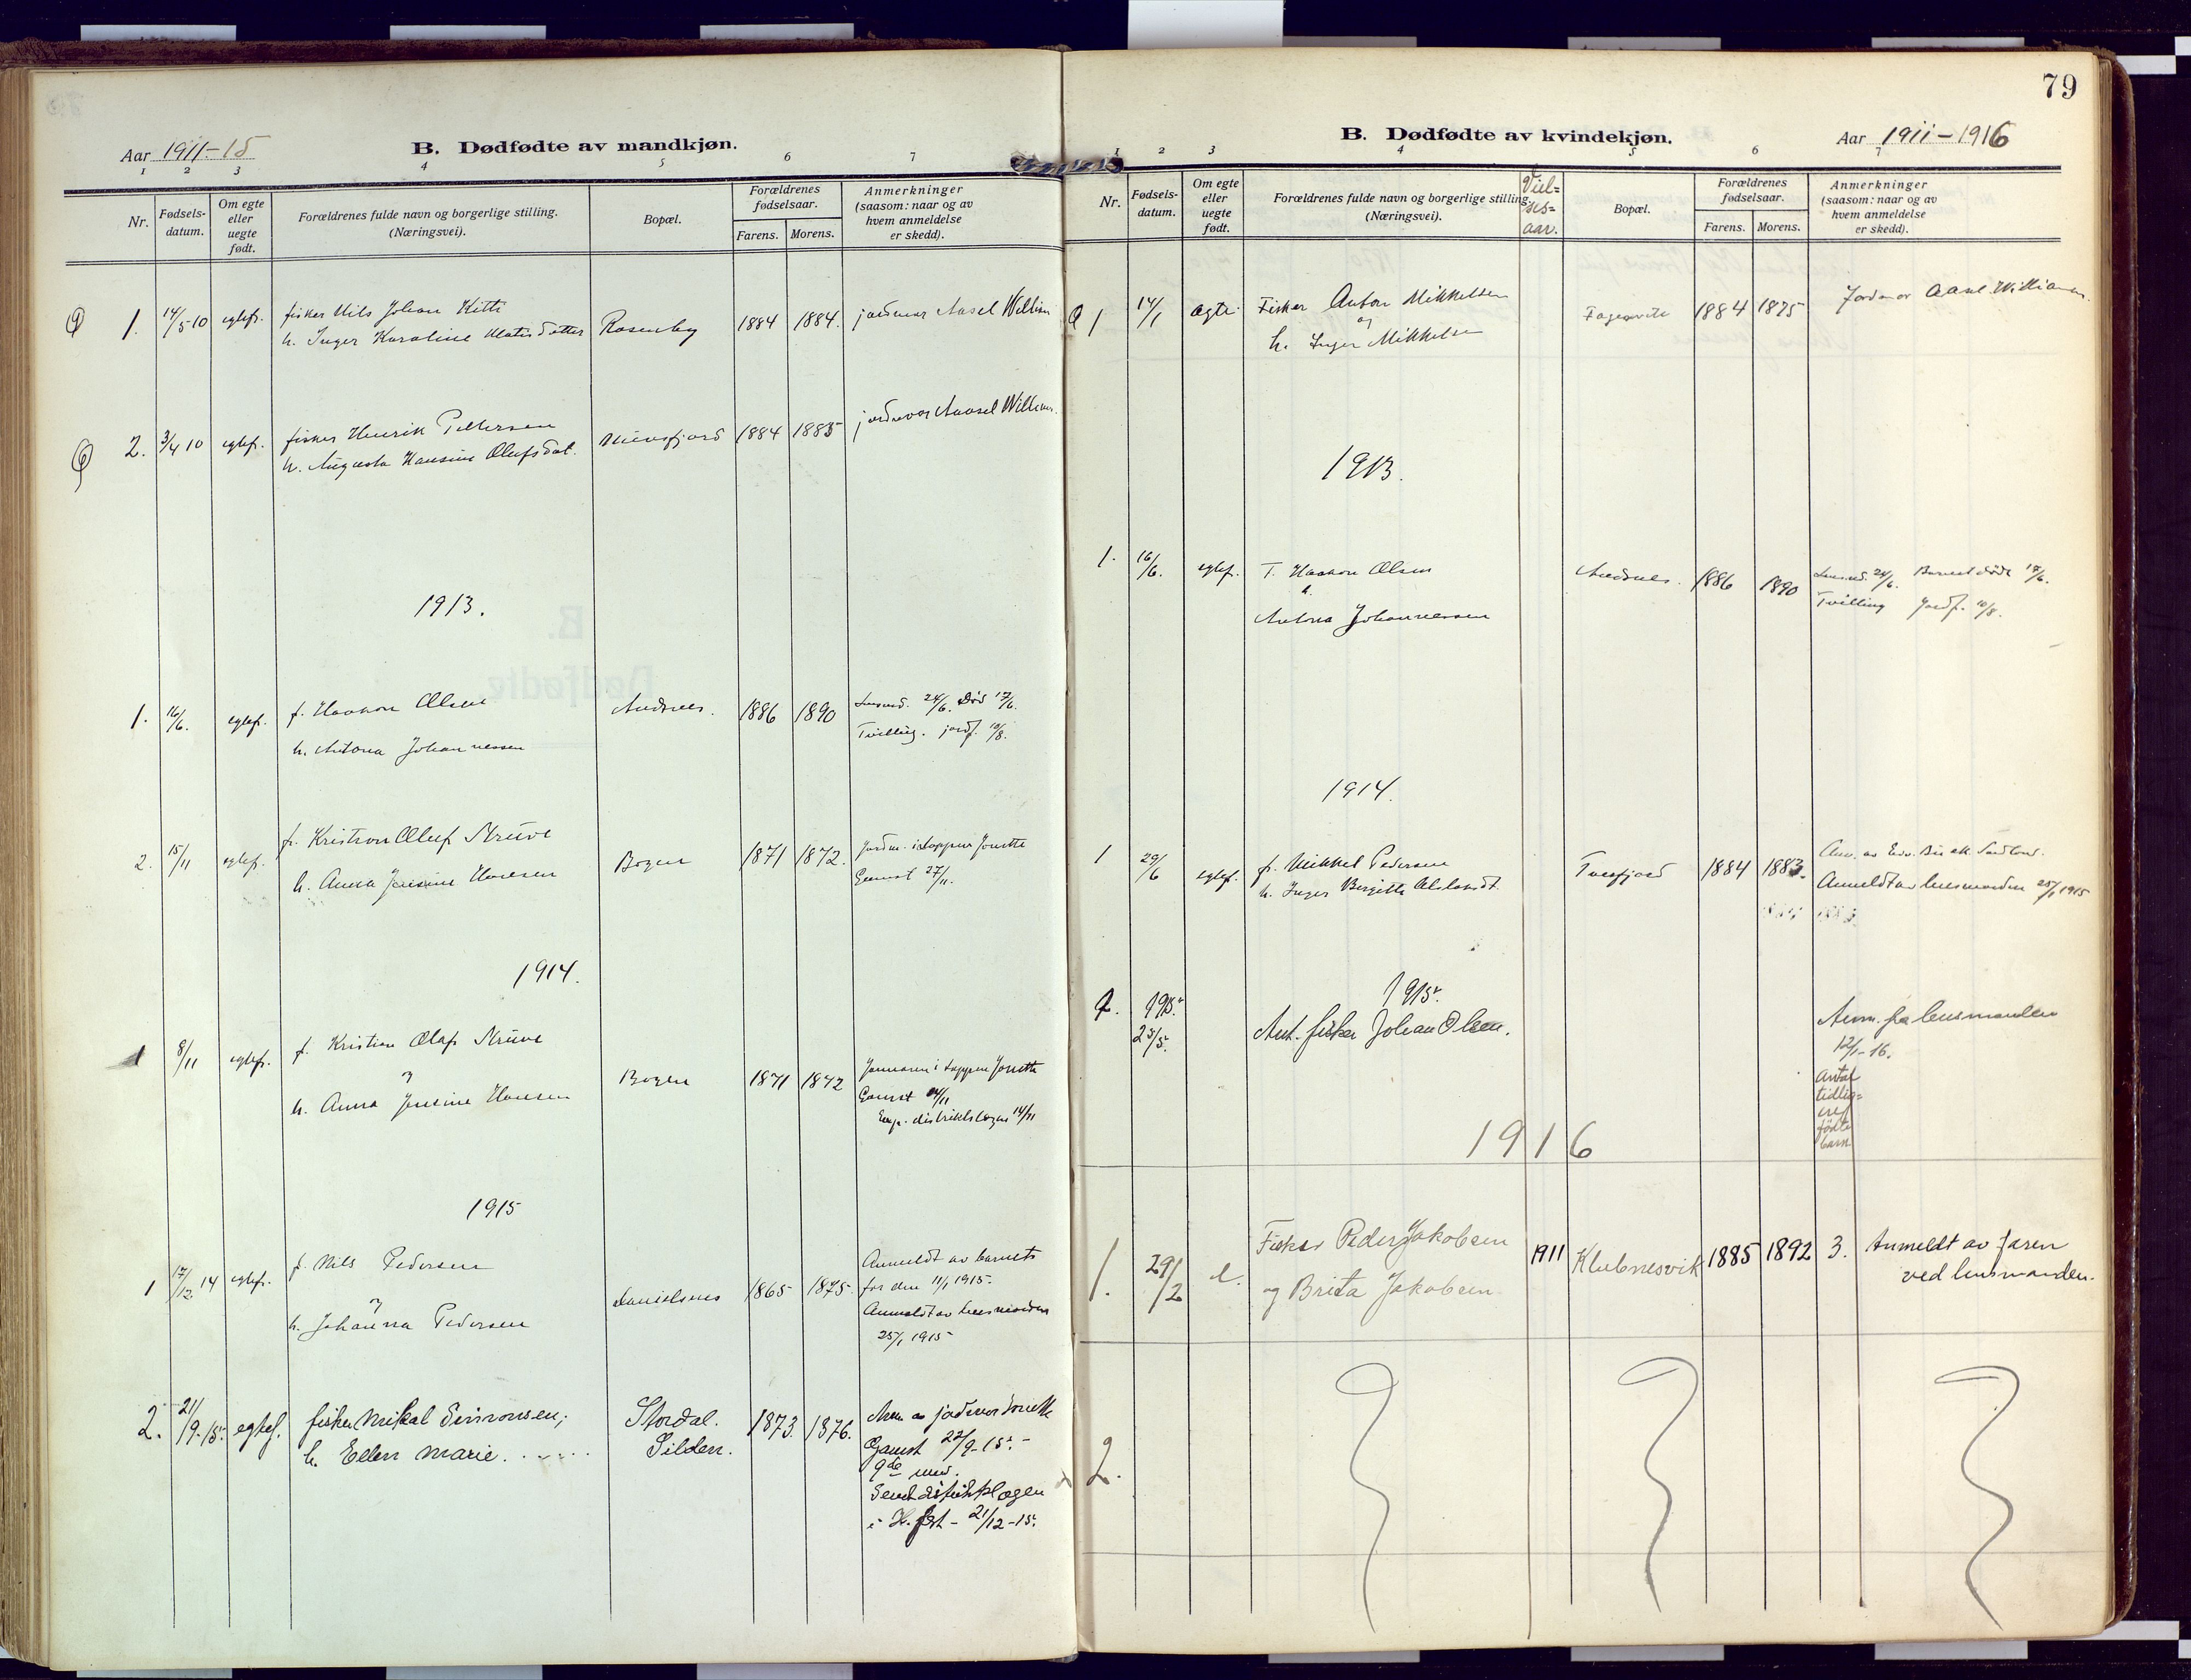 Aar 1911-15
B. Dødfødte av mandkjøn.
1 2 3 4 5 6 7
Nr.
Fødsels-datum.
Om egte eller uegte født.
Forældrenes fulde navn og borgerlige stilling. (Næringsvei).
Bopæl.
Forældrenes fødselsaar.
Farens. Morens.
Anmerkninger (saasom: naar og av hvem anmeldelse er skedd).
1. 14/5 10 egtef. fisker Nils Johan Kitti 1884 1884. jordmor
h. Inger Karoline datter
2. 3/4 10 egtef. fisker Henrik Pettersen 1884 1885 jordmor
h. Augusta Hansine Olufsdat.
1913.
1. 16/6. egtef. f. Haakon Olsen Andsnes. 1886 1890 24/6. Død 17/6.
h. Antona Johannessen Tvilling. jordf. 10/8.
2. 15/11 egtef. f. Oluf Struve Bogen 1871 1872. Jordm. i Loppen Jonette
h. Anna Jensine Hansen Gamst 27/11.
1914.
1 8/11 egtef. f. Kristian Olaf Struve Bogen 1871 1872 i Loppen Jonette
h. Anna Jensine Hansen Gamst
distriktslægen 14/11
1915
1 17/12 14 egtef. f. Nils Pedersen 1865 1875 Anmeldt av barnets
og far den 11/1 1915.
h. Johanna Pedersen Anmeldt av lensmanden
25/1 1915
2. 21/9-15. egtef. fisker Mikal Simonsen, Stordal. 1873. 1876. Anm. av jordmor Jonette
h. Ellen Marie. Silden. Gamst 22/9-15.
9de
Sendt distriktslægen
i H.fest - 21/12-15.
79
B. Dødfødte av kvindekjøn.
Aar 1911-1916
1 2 3 4 5 6 7
Nr.
Fødsels-datum.
Om egte eller uegte født.
Forældrenes fulde navn og borgerlige stilling. (Næringsvei).
Viel=ses=aar.
Bopæl.
Forældrenes fødselsaar.
Farens. Morens.
Anmerkninger (saasom: naar og av hvem anmeldelse er skedd).
1 14/1 ægte Fisker Anton Mikkelsen 1884 1875 Jordmor
og
h. Inger Mikkelsen
1913.
1. 16/6. egtef. f. Haakon Olsen Andsnes. 1886 1890 24/6. Barnet døde 17/6.
h. Tvilling Jordf. 10/8.
Antona Johannessen
1914.
1 29/6 egtef. f. Mikkel Pedersen 1884 1883.
h. Inger Birgitte Anmeldt av lensmanden 25/1 1915
1915.
2. 1915. 25/5. Ant. fisker Johan Olsen. Anm. fra lensmanden
12/1-16.
Antal tidlig=ere fødte barn.
1916
1. 29/2 e. Fisker Peder Jakobsen 1911 Klubnesvik 1885 1892 3. Anmeldt av faren
og Brita Jakobsen ved lensmanden.
2.